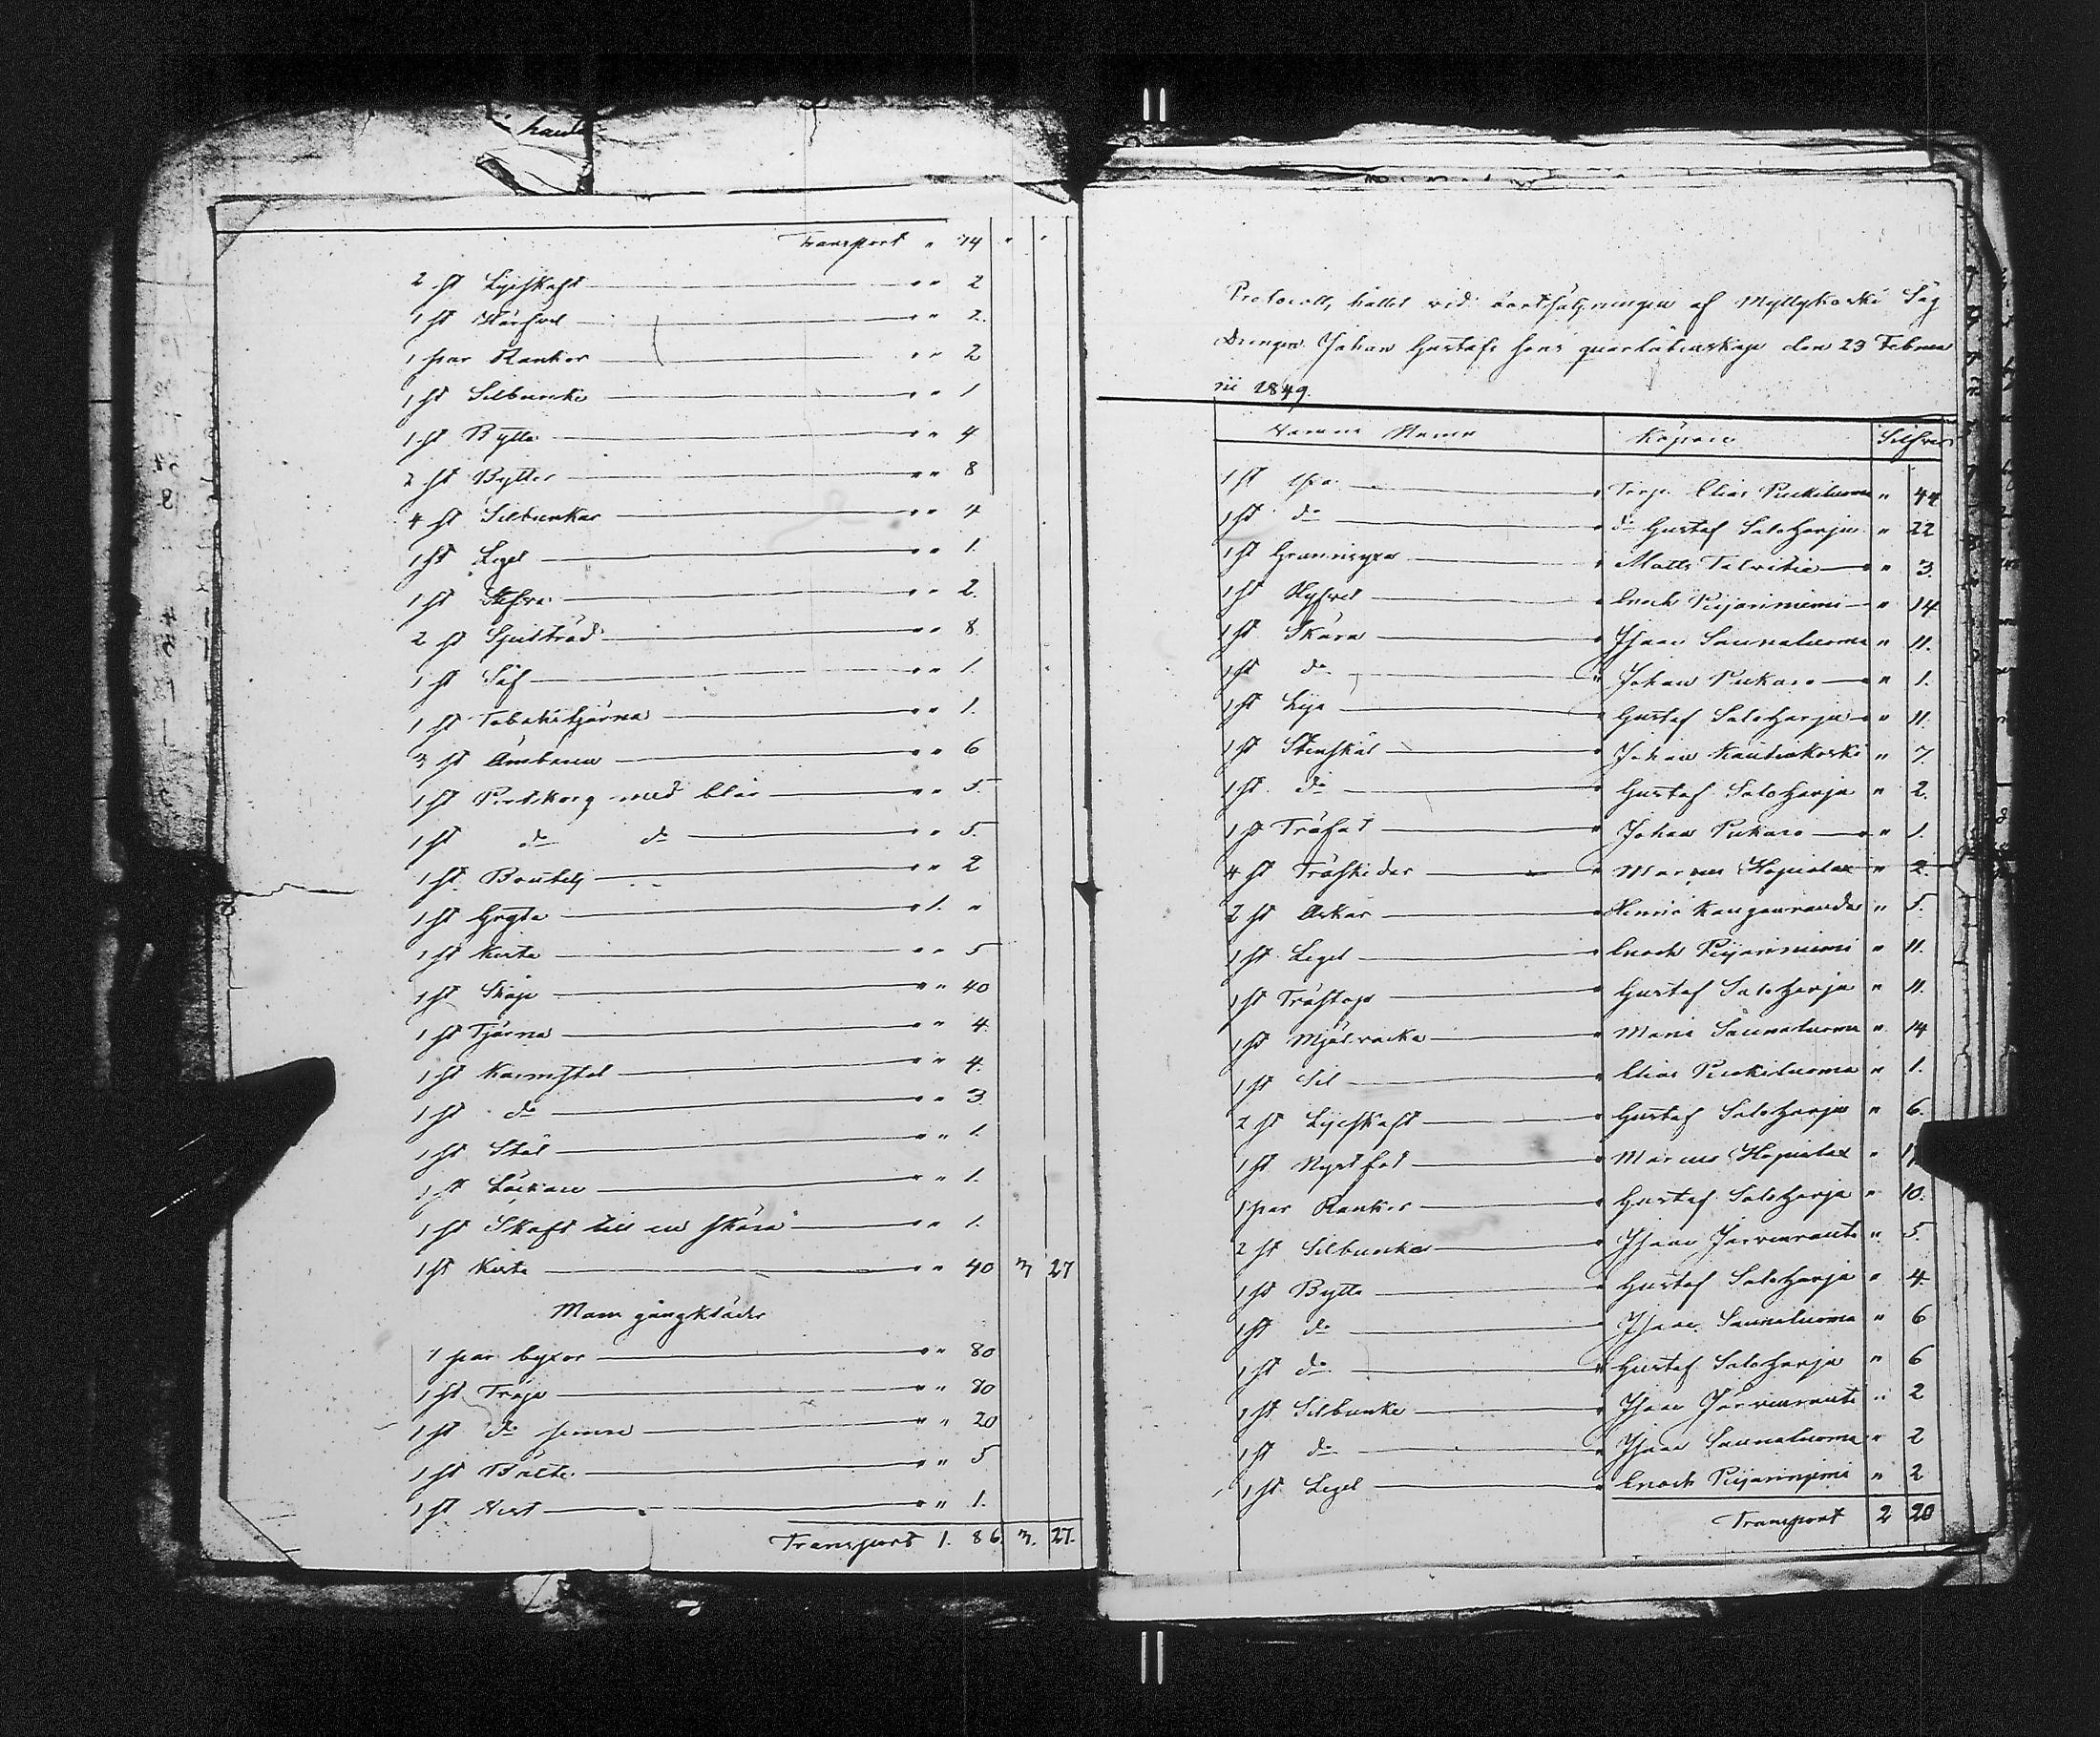 Transport " 74 " "
2 st Lijeskaft " " 2
1 st Härfvel " " 2.
1 par Rankor " " 2
1 st Silbunke " " 1
1 st Bytta " " 4
2 st Byttor " " 8
4 st Silbunkar " " 4
1 st Legel " " 1.
1 st Stäfva " " 2.
2 st Spitträd " " 8.
1 st Såf " " 1.
1 st Tobakstjärna " " 1.
3 st Ämbaren " " 6
1 st Pertkorg med blår " " 5.
1 st do do " " 5.
1 st Boutelj " " 2
1 st Gryta " 1. "
1 st Kista " " 5
1 st Skåp " " 40
1 st Tjärna " " 4.
1 st Karmstol " " 4.
1 st do " " 3.
1 st Stol " " 1.
1 st " " 1.
1 st Skaft till en skära " " 1.
1 st Kista " " 40 3 27
Mans gångkläder
1 par byxor " " 80
1 st Tröja " " 80
1 st do sämre " " 20
1 st Bälte " " 5
1 st Väst " " 1.
Transport 1. 86. 3. 27.
hault
Protocoll, hållet vid bortsälgningen af Myllykoski Såg
Drengen Johan Gustafs sons qvarlåtenskap den 23 Februa
rii 1849.
Varans Namn Köpare Silfver
1 st Yxa Torp. Elias Puskiluoma " 44
1 st do do Gustaf Saloharju " 22
1 st Matts Talvitie " 3.
1 st Hyfvel Enoch Peijariniemi " 14
1 st Skära Isaac Saunaluoma " 11.
1 st do Johan Pukaro " 1.
1 st Lija Gustaf Saloharju " 11.
1 st Stenskål Johan Kauhakoski " 7.
1 st do Gustaf Saloharju " 2.
1 st Träfat Johan Pukaro " 1.
4 st Träskedar Marcus Hopialax " 2.
2 st Askar Kangasranda " 5.
1 st Legel Enoch Peijariniemi " 11.
1 st Trästop Gustaf Saloharju " 11.
1 st Mjölvacka Maria Saunaluoma " 14
1 st Sil Elias Puskiluoma " 1.
2 st Lijeskaft Gustaf Saloharju " 6.
1 st Marcus Hopialax "
1 par Rankor Gustaf Saloharju " 10.
2 st Silbunkar Isaac Jarvenranta " 5.
1 st Bytta Gustaf Saloharju " 4.
1 st do Isaac Saunaluoma " 6
1 st do Gustaf Saloharju " 6
1 st Silbunke Isaac Järvenranta " 2
1 st do Isaac Saunaluoma " 2
1 st Legel Enoch Peijariniemi " 2
Transport 2 20